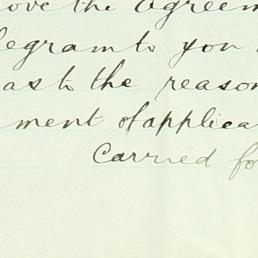 the Agreem
legram to you
as to the reason
ment of applica
Carried fo